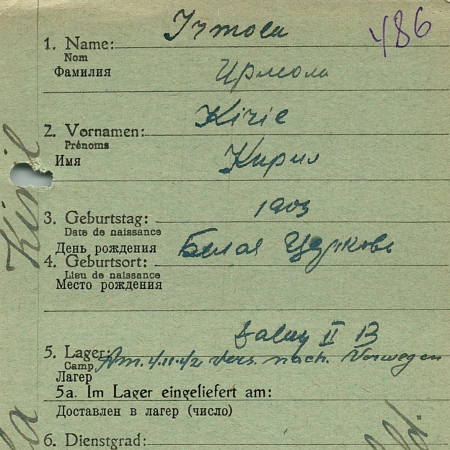 Irmola 486
1. Name:
Nom
Фамилия
Ирмола
2. Vornamen: Kirie
Prénoms
Имя
Кирил
Kiril
3. Geburtstag: 1903
Date de naissance
День рождения
4. Geburtsort: Белая Церковь
Lieu de naissance
Место рождения
Stalag II B
5. Lager:
Camp,
Am. 4.11.42 vers. nach. Norwegen
Лагер
5a. Im Lager eingeliefert am:
Доставлен в лагер (число)
6. Dienstgrad: